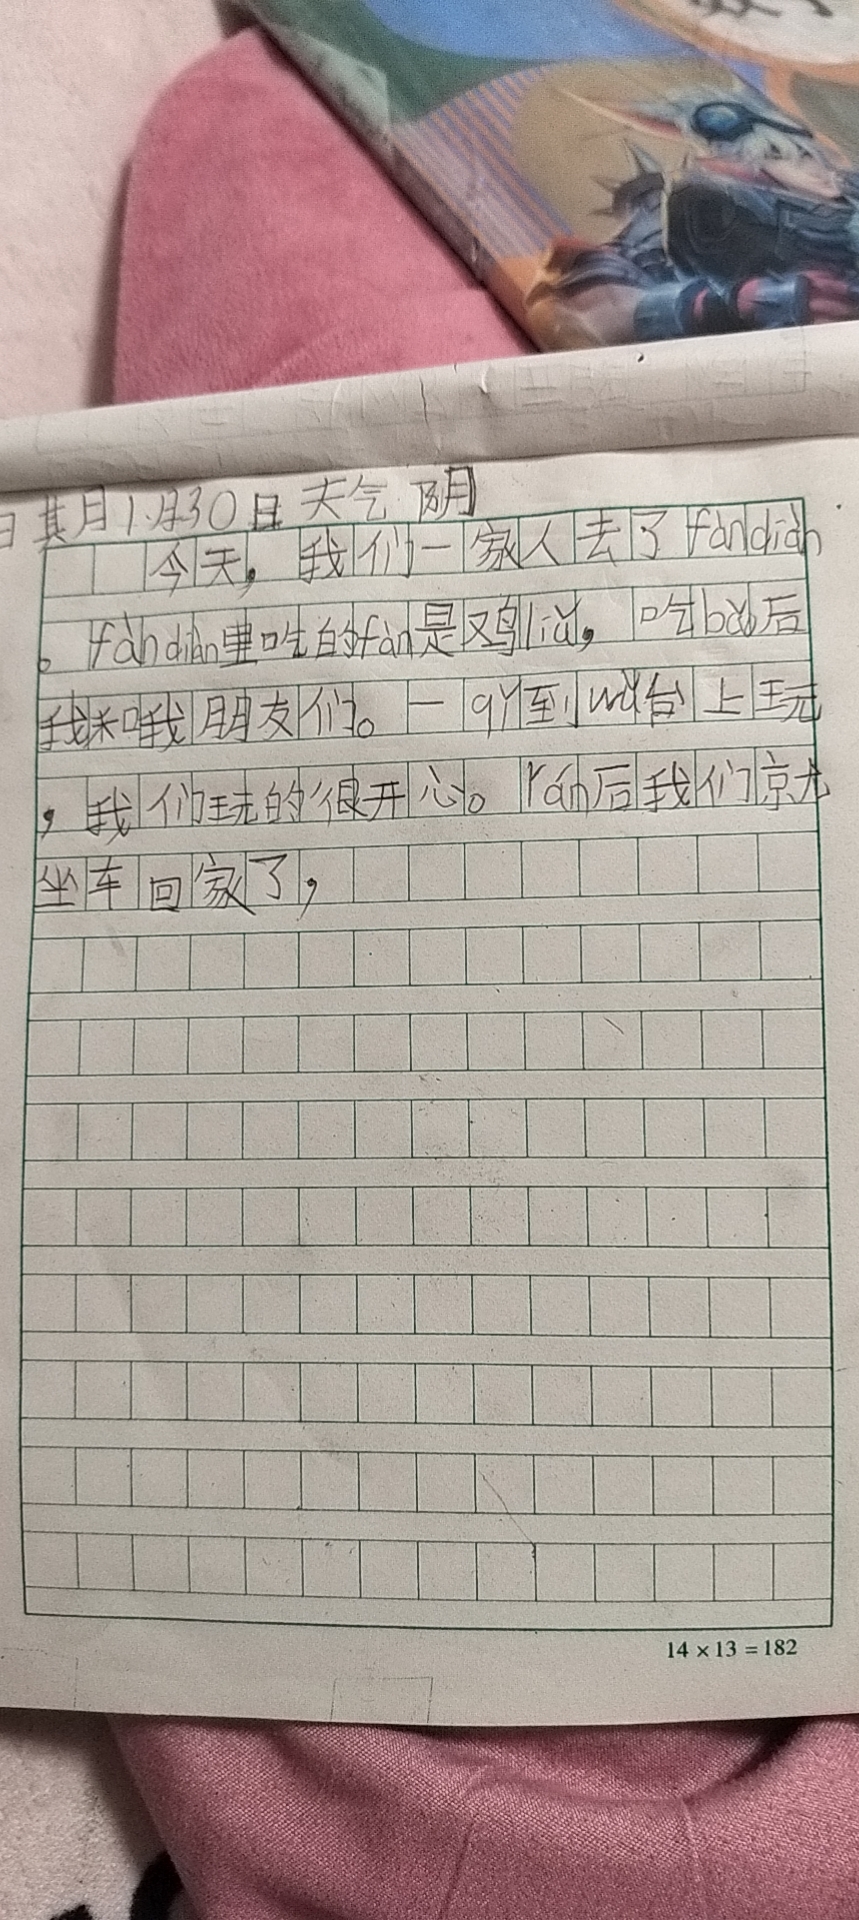 日其月1月30日 天气 阴
今天，我们一家人去了fàndiàn
。fàndiàn里吃的fàn是鸡liǔ，吃bǎo后
我和我朋友们。一qǐ到wǔ台上玩
，我们玩的很开心。rán后我们就
坐车回家了，
14×13=182